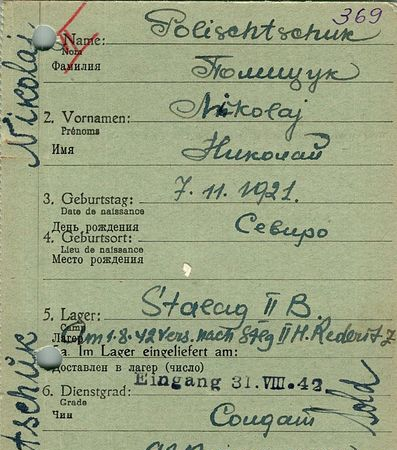 369
1. Name: Polischtschuk
Nom
Фамилия Полищук
2. Vornamen: Nikolaj
Prénoms
Имя Николай
3. Geburtstag: 7. 11. 1921.
Date de naissance
День рождения
4. Geburtsort: Севиро
Lieu de naissance
Место рождения
5. Lager: Stalag II B.
Camp
Лагерь Am 1.8.42 vers. nach Stlg II H. Rederitz
a. Im Lager eingeliefert am:
доставлен в лагер (число) Eingang 31. VIII. 42
6. Dienstgrad: Солдат
Grade
Чин
Nikolaj
tschuk
Sold